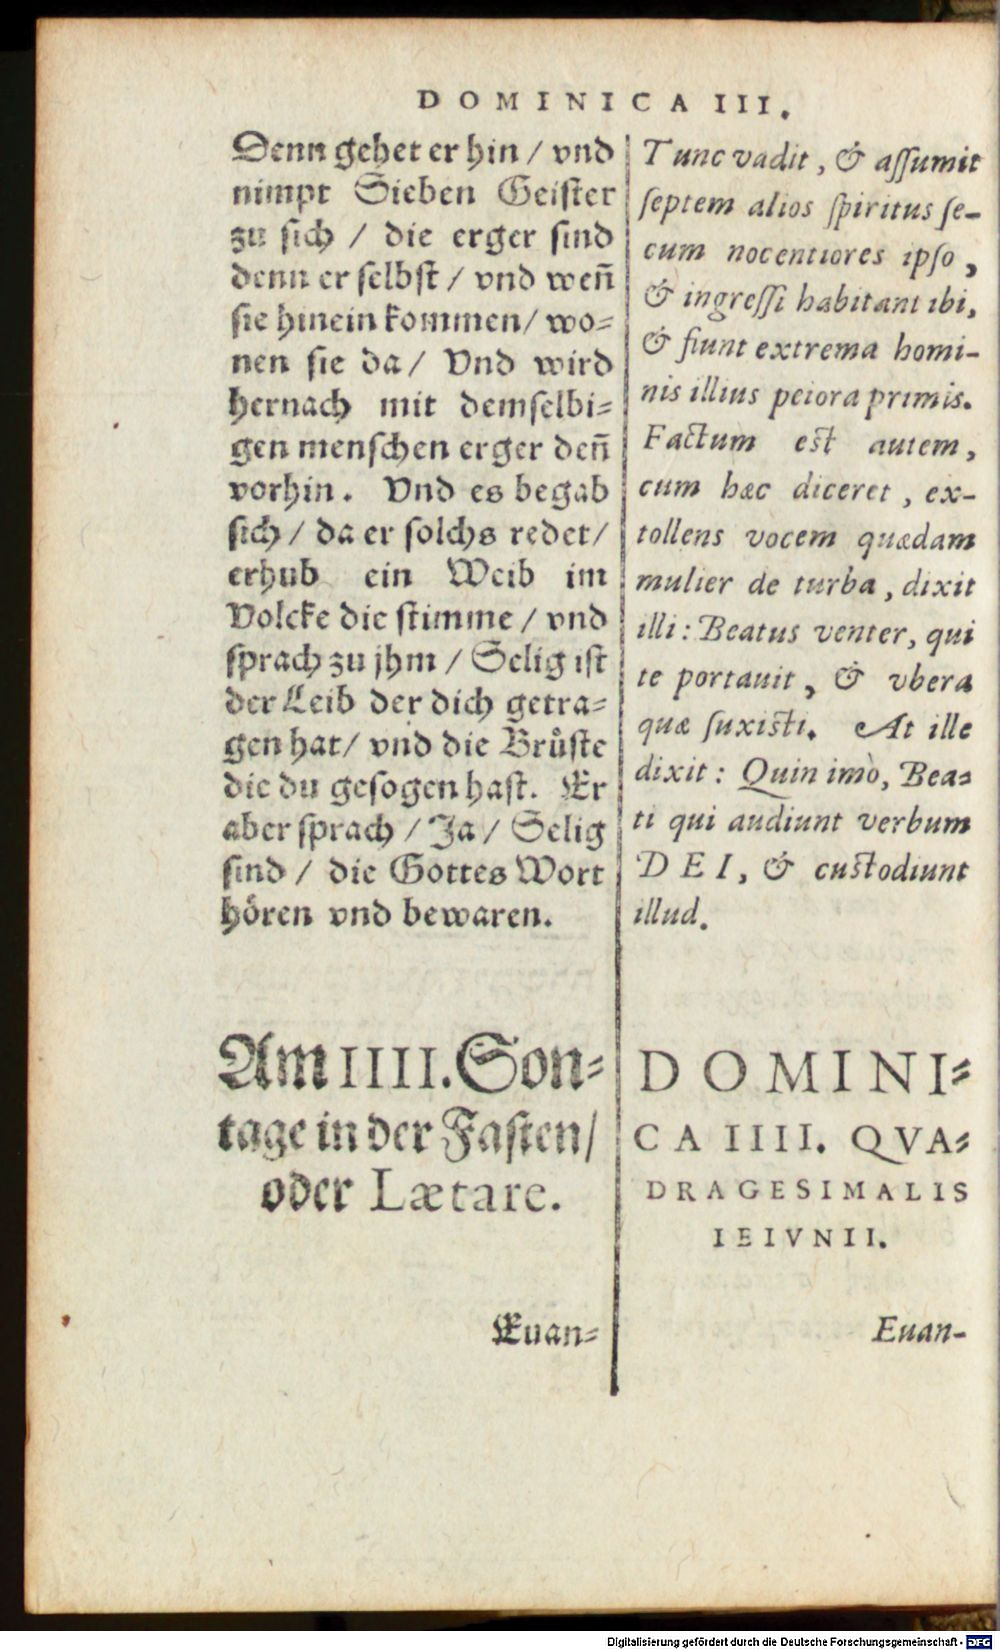 DOMINICA III.
Denn gehet er hin / vnd
nimpt Sieben Geister
zu sich / die erger sind
denn er selbst / vnd weñ
sie hinein kommen / wo-
nen sie da / Vnd wird
hernach mit demselbi-
gen menschen erger deñ
vorhin. Vnd es begab
sich / da er solchs redet /
erhub ein Weib im
Volcke die stimme / vnd
sprach zu jhm / Selig ist
der Leib der dich getra-
gen hat / vnd die Brůste
die du gesogen hast. Er
aber sprach / Ja / Selig
sind / die Gottes Wort
hôren vnd bewaren.
Am IIII. Son-
tage in der Fasten /
oder Lætare.
Euan-
Tunc vadit, & aſſumit
ſeptem alios ſpiritus ſe-
cum nocentiores ipſo,
& ingreſſi habitant ibi,
& fiunt extrema homi-
nis illius peiora primis.
Factum est autem,
cum hæc diceret, ex-
tollens vocem quædam
mulier de turba, dixit
illi: Beatus venter, qui
te portauit, & vbera
quæ ſuxisti. At ille
dixit: Quin imò, Bea-
ti qui audiunt verbum
DEI, & custodiunt
illud.
DOMINI-
CA IIII. QVA-
DRAGESIMALIS
IEIVNII.
Euan-
Digitalisierung gefördert durch die Deutsche Forschungsgemeinschaft - DFG